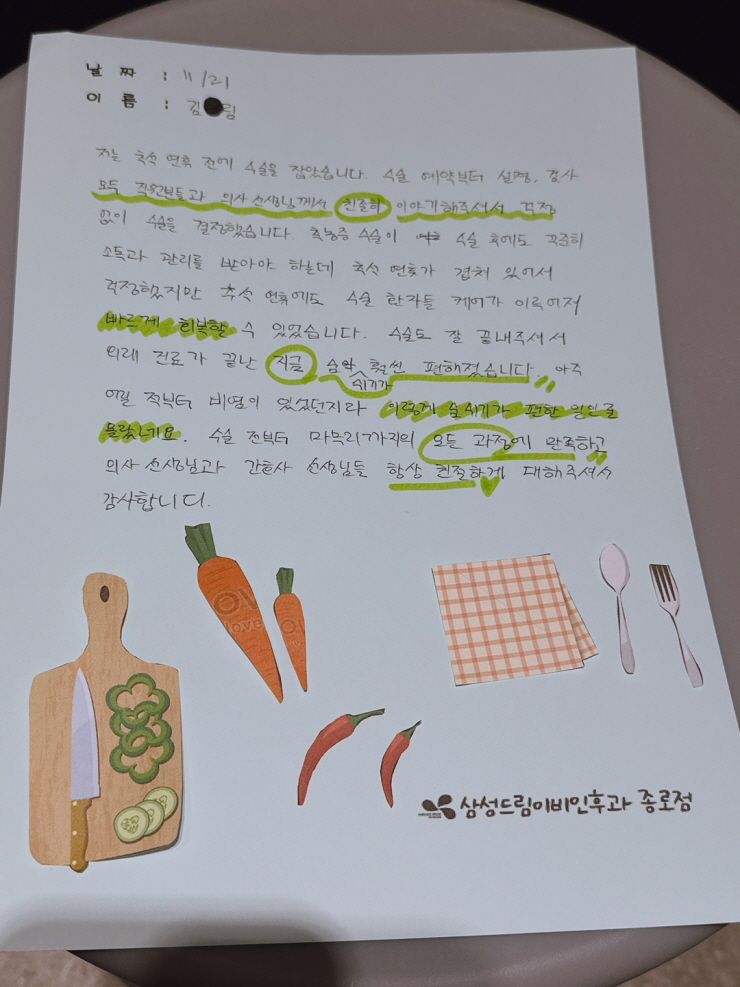 날 짜 : 11/21
이 름 : 김 림
저는 추석 연휴 전에 수술을 잡았습니다. 수술 예약부터 설명, 검사
모두 직원분들과 의사 선생님께서 친절히 이야기해주셔서 걱정
없이 수술을 결정했습니다. 축농증 수술이 수술 후에도 꾸준히
소독과 관리를 받아야 하는데 추석 연휴가 겹쳐 있어서
걱정했지만 추석 연휴에도 수술 환자들 케어가 이루어져
빠르게 회복할 수 있었습니다. 수술도 잘 끝내주셔서
외래 진료가 끝난 지금 숨쉬기가 훨씬 편해졌습니다. 아주
어릴 적부터 비염이 있었던지라 이렇게 숨쉬기가 편한 일인줄
몰랐네요. 수술 전부터 마무리까지의 모든 과정에 만족하고
의사 선생님과 간호사 선생님들 항상 친절하게 대해주셔서
감사합니다.
삼성드림이비인후과 종로점